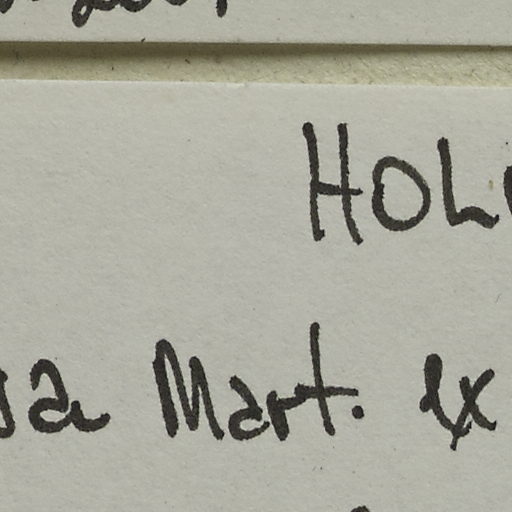 HOL
sa Mart. ex